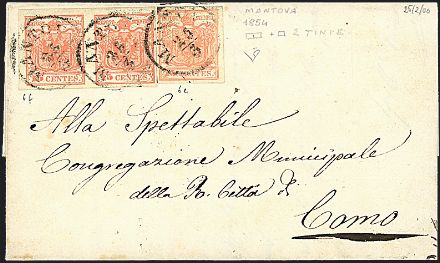 MANTOVA
1854
+ 2 TINTE
25/2/00
CENTES. CENTES. CENTES.
6e
Alla Spettabile
Congregazione Municipale
della R. Città di
Como